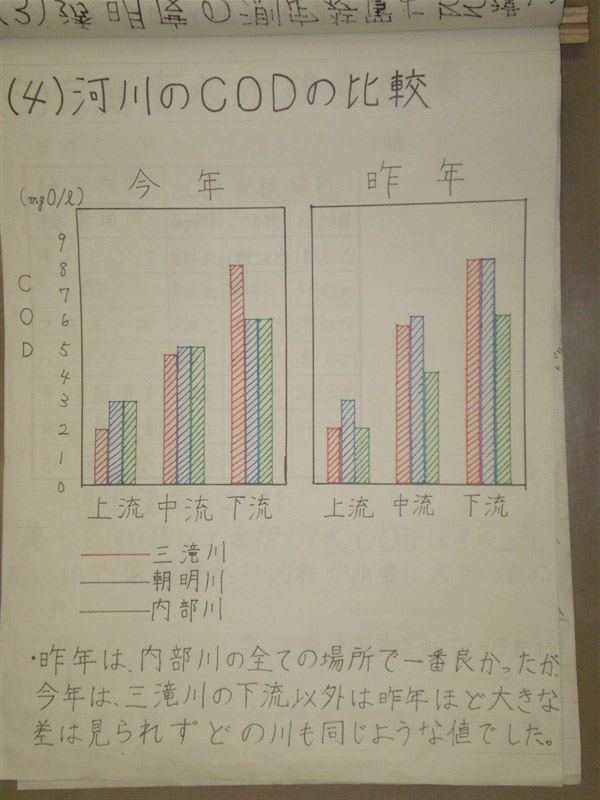 (3)透明度の測定
(4)河川のCODの比較
今年 昨年
(mgO/l)
COD
9
8
7
6
5
4
3
2
1
0
上流 中流 下流 上流 中流 下流
三滝川
朝明川
内部川
・昨年は、内部川の全ての場所で一番良かったが
今年は、三滝川の下流以外は昨年ほど大きな
差は見られずどの川も同じような値でした。